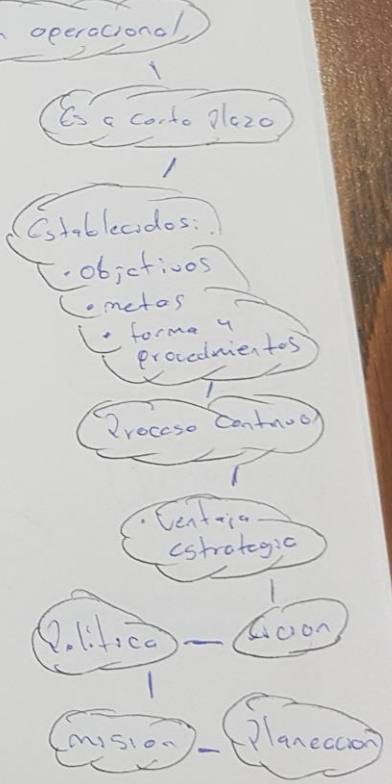 n operacional
Es a corto Plazo
Establecidos:
• objetivos
• metas
• forma y
procedmientos
Proceso Continuo
• Ventaja
estrategia
Politica
vision
mision
Planeccion